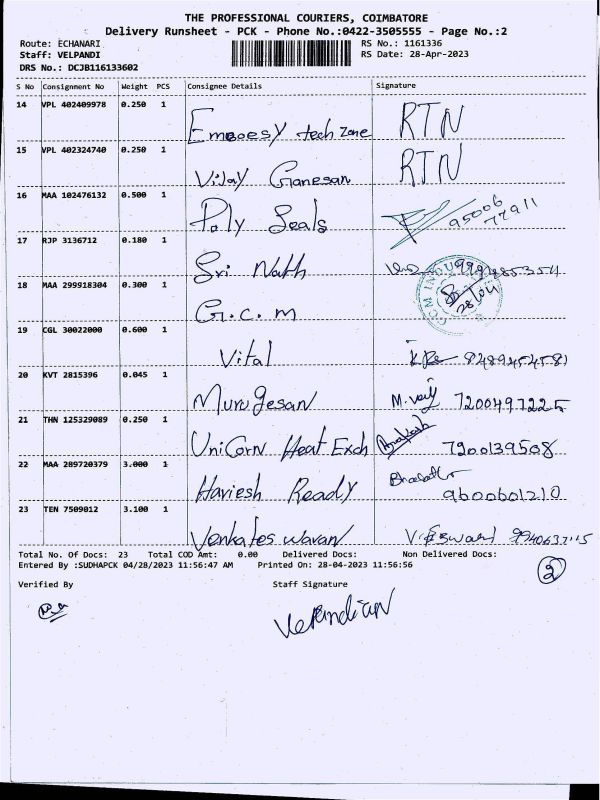 THE PROFESSIONAL COURIERS, COIMBATORE
Delivery Runsheet - PCK - Phone No.:0422-3505555 - Page No.:2
Route: ECHANARI RS No.: 1161336
Staff: VELPANDI RS Date: 28-Apr-2023
DRS No.: DCJB116133602
S No Consignment No Weight PCS Consignee Details Signature
14 VPL 402409978 0.250 1 Emboesy tech Zone RTN
15 VPL 402324740 0.250 1 Vijay Ganesan RTN
16 MAA 102476132 0.500 1 Poly Seals 95006 77911
17 RJP 3136712 0.180 1 Sri Nath
18 MAA 299918304 0.300 1 G.C.M 28/04
19 CGL 30022000 0.600 1 Vital
20 KVT 2815396 0.045 1 Murugesan 7200497225
21 THN 125329089 0.250 1 UniCorn Heat Exch 7900139508
22 MAA 289720379 3.000 1 Haviesh Ready 9600601210
23 TEN 7509012 3.100 1 Venkateswaran
Total No. Of Docs: 23 Total COD Amt: 0.00 Delivered Docs: Non Delivered Docs:
Entered By :SUDHAPCK 04/28/2023 11:56:47 AM Printed On: 28-04-2023 11:56:56
2
Verified By Staff Signature